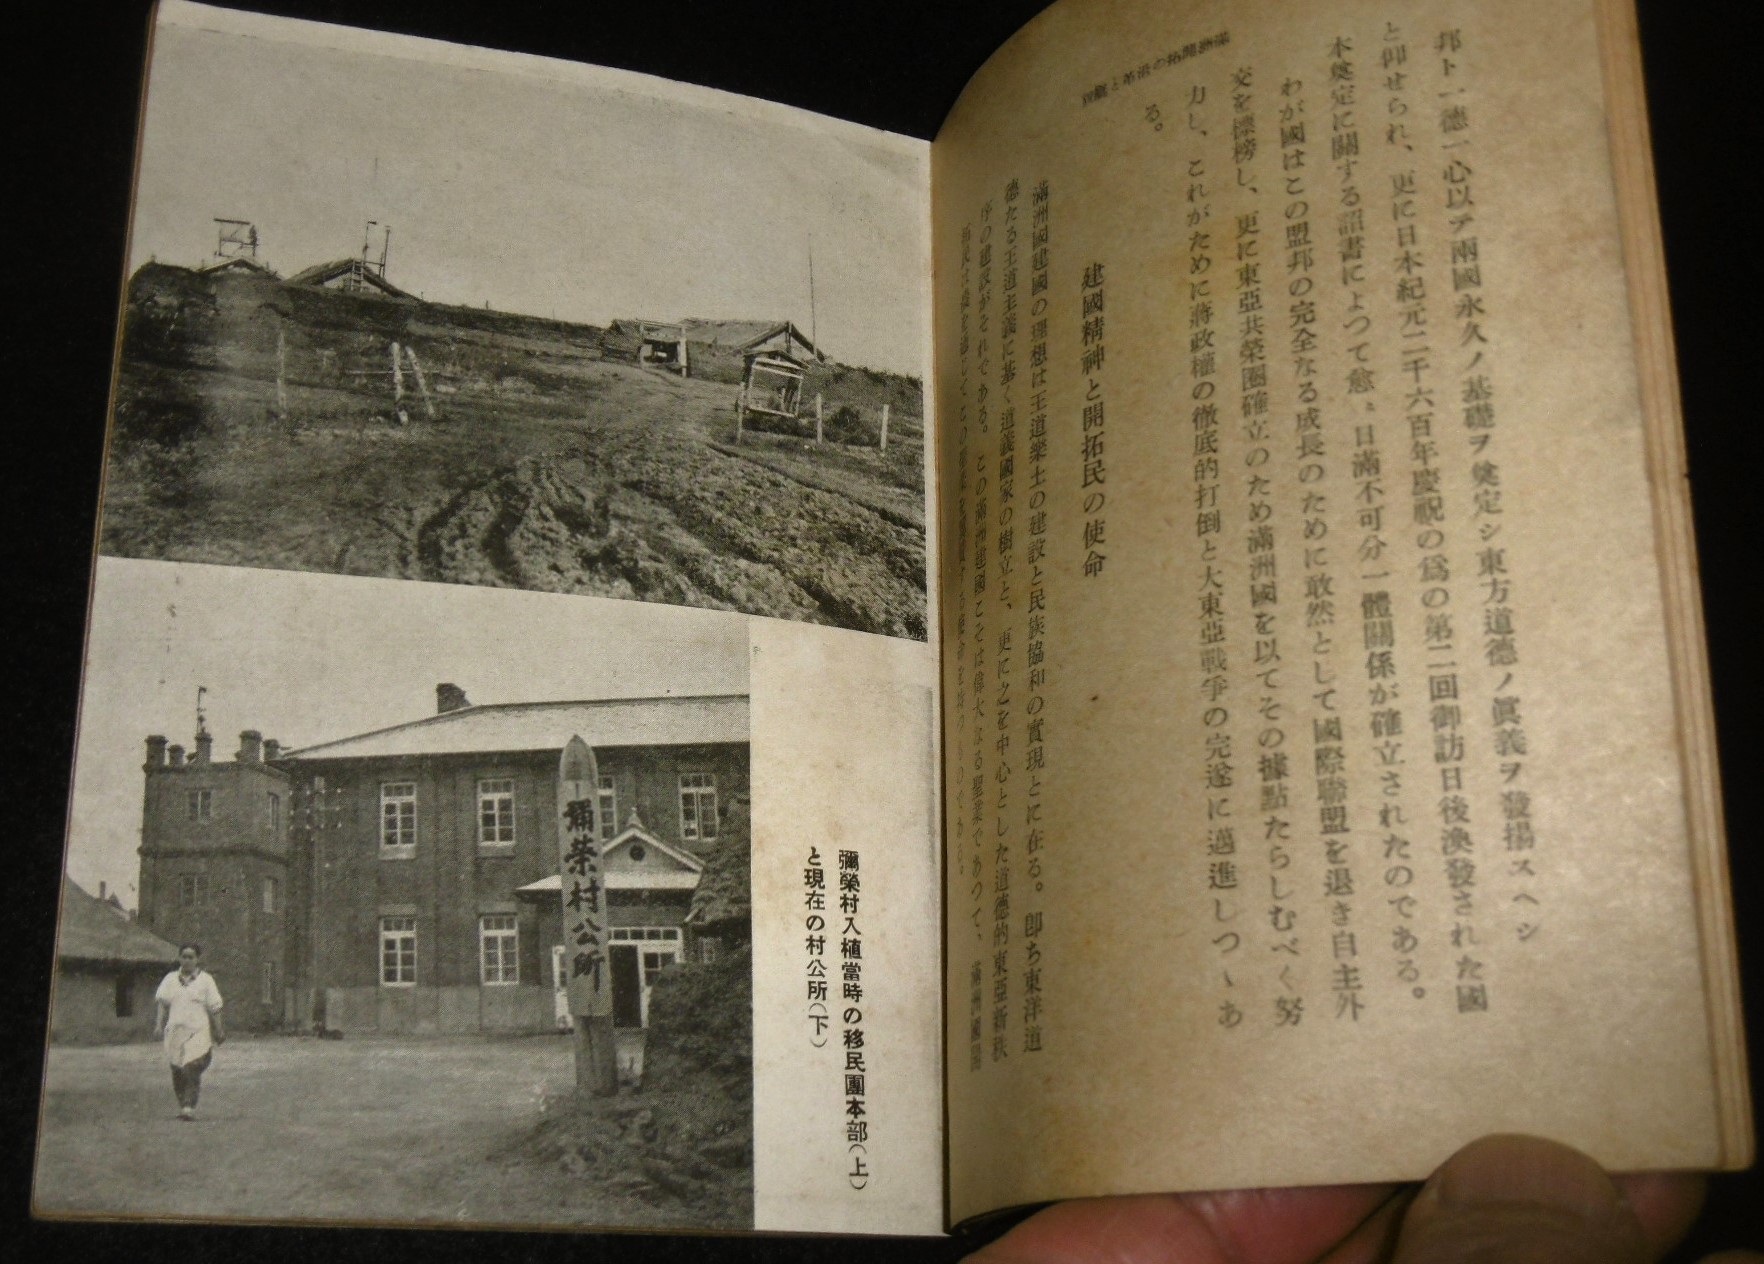 邦ト一德一心以テ兩國永久ノ基礎ヲ奠定シ東方道德ノ眞義ヲ發揚スヘシ
と仰せられ、更に日本紀元二千六百年慶祝の爲の第二回御訪日後渙發された國
本奠定に關する詔書によつて愈〻日滿不可分一體關係が確立されたのである。
わが國はこの盟邦の完全なる成長のために敢然として國際聯盟を退き自主外
交を標榜し、更に東亞共榮圈確立のため滿洲國を以てその據點たらしむべく努
力し、これがために蔣政權の徹底的打倒と大東亞戰爭の完遂に邁進しつゝあ
る。
建國精神と開拓民の使命
滿洲國建國の理想は王道樂土の建設と民族協和の實現とに在る。卽ち東洋道
德たる王道主義に基く道義國家の樹立と、更に之を中心とした道德的東亞新秩
序の建設がそれである。この滿洲建國こそは偉大なる聖業であつて、滿洲開
彌榮村入植當時の移民團本部(上)
と現在の村公所(下)
彌榮村公所